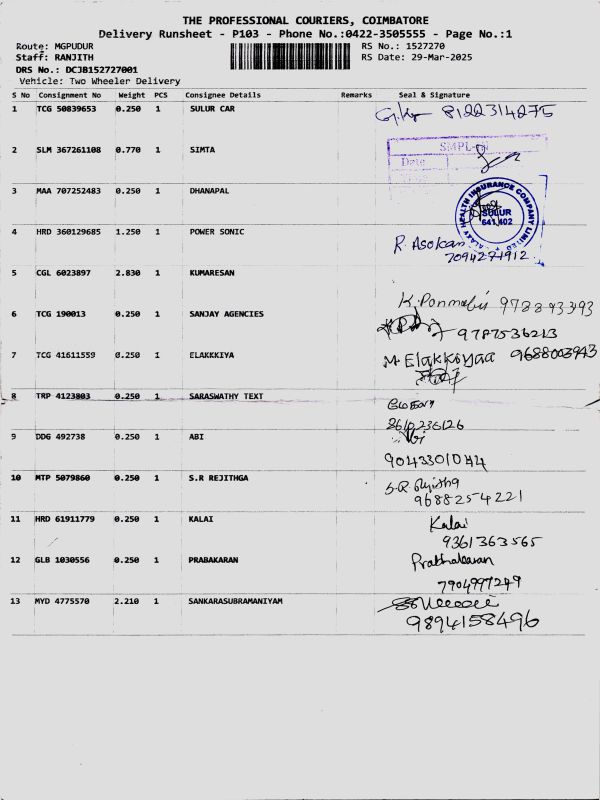 THE PROFESSIONAL COURIERS, COIMBATORE
Delivery Runsheet - P103 - Phone No.:0422-3505555 - Page No.:1
Route: MGPUDUR
RS No.: 1527270
Staff: RANJITH
RS Date: 29-Mar-2025
DRS No.: DCJB152727001
Vehicle: Two Wheeler Delivery
S No Consignment No Weight PCS Consignee Details Remarks Seal & Signature
1 TCG 50839653 0.250 1 SULUR CAR
8122314275
2 SLM 367261108 0.770 1 SIMTA
SMPL
Date
3 MAA 707252483 0.250 1 DHANAPAL
HEALTH INSURANCE COMPANY LIMITED
SULUR
641 402
4 HRD 360129685 1.250 1 POWER SONIC
R. Asokan
7094271912
5 CGL 6023897 2.830 1 KUMARESAN
6 TCG 190013 0.250 1 SANJAY AGENCIES
9787536213
7 TCG 41611559 0.250 1 ELAKKKIYA
M. Elakkiyaa 9688003943
8 TRP 4123803 0.250 1 SARASWATHY TEXT
9 DDG 492738 0.250 1 ABI
10 MTP 5079860 0.250 1 S.R REJITHGA
9688254221
11 HRD 61911779 0.250 1 KALAI
Kalai
9361363565
12 GLB 1030556 0.250 1 PRABAKARAN
Prabhakaran
7904997249
13 MYD 4775570 2.210 1 SANKARASUBRAMANIYAM
9894158496